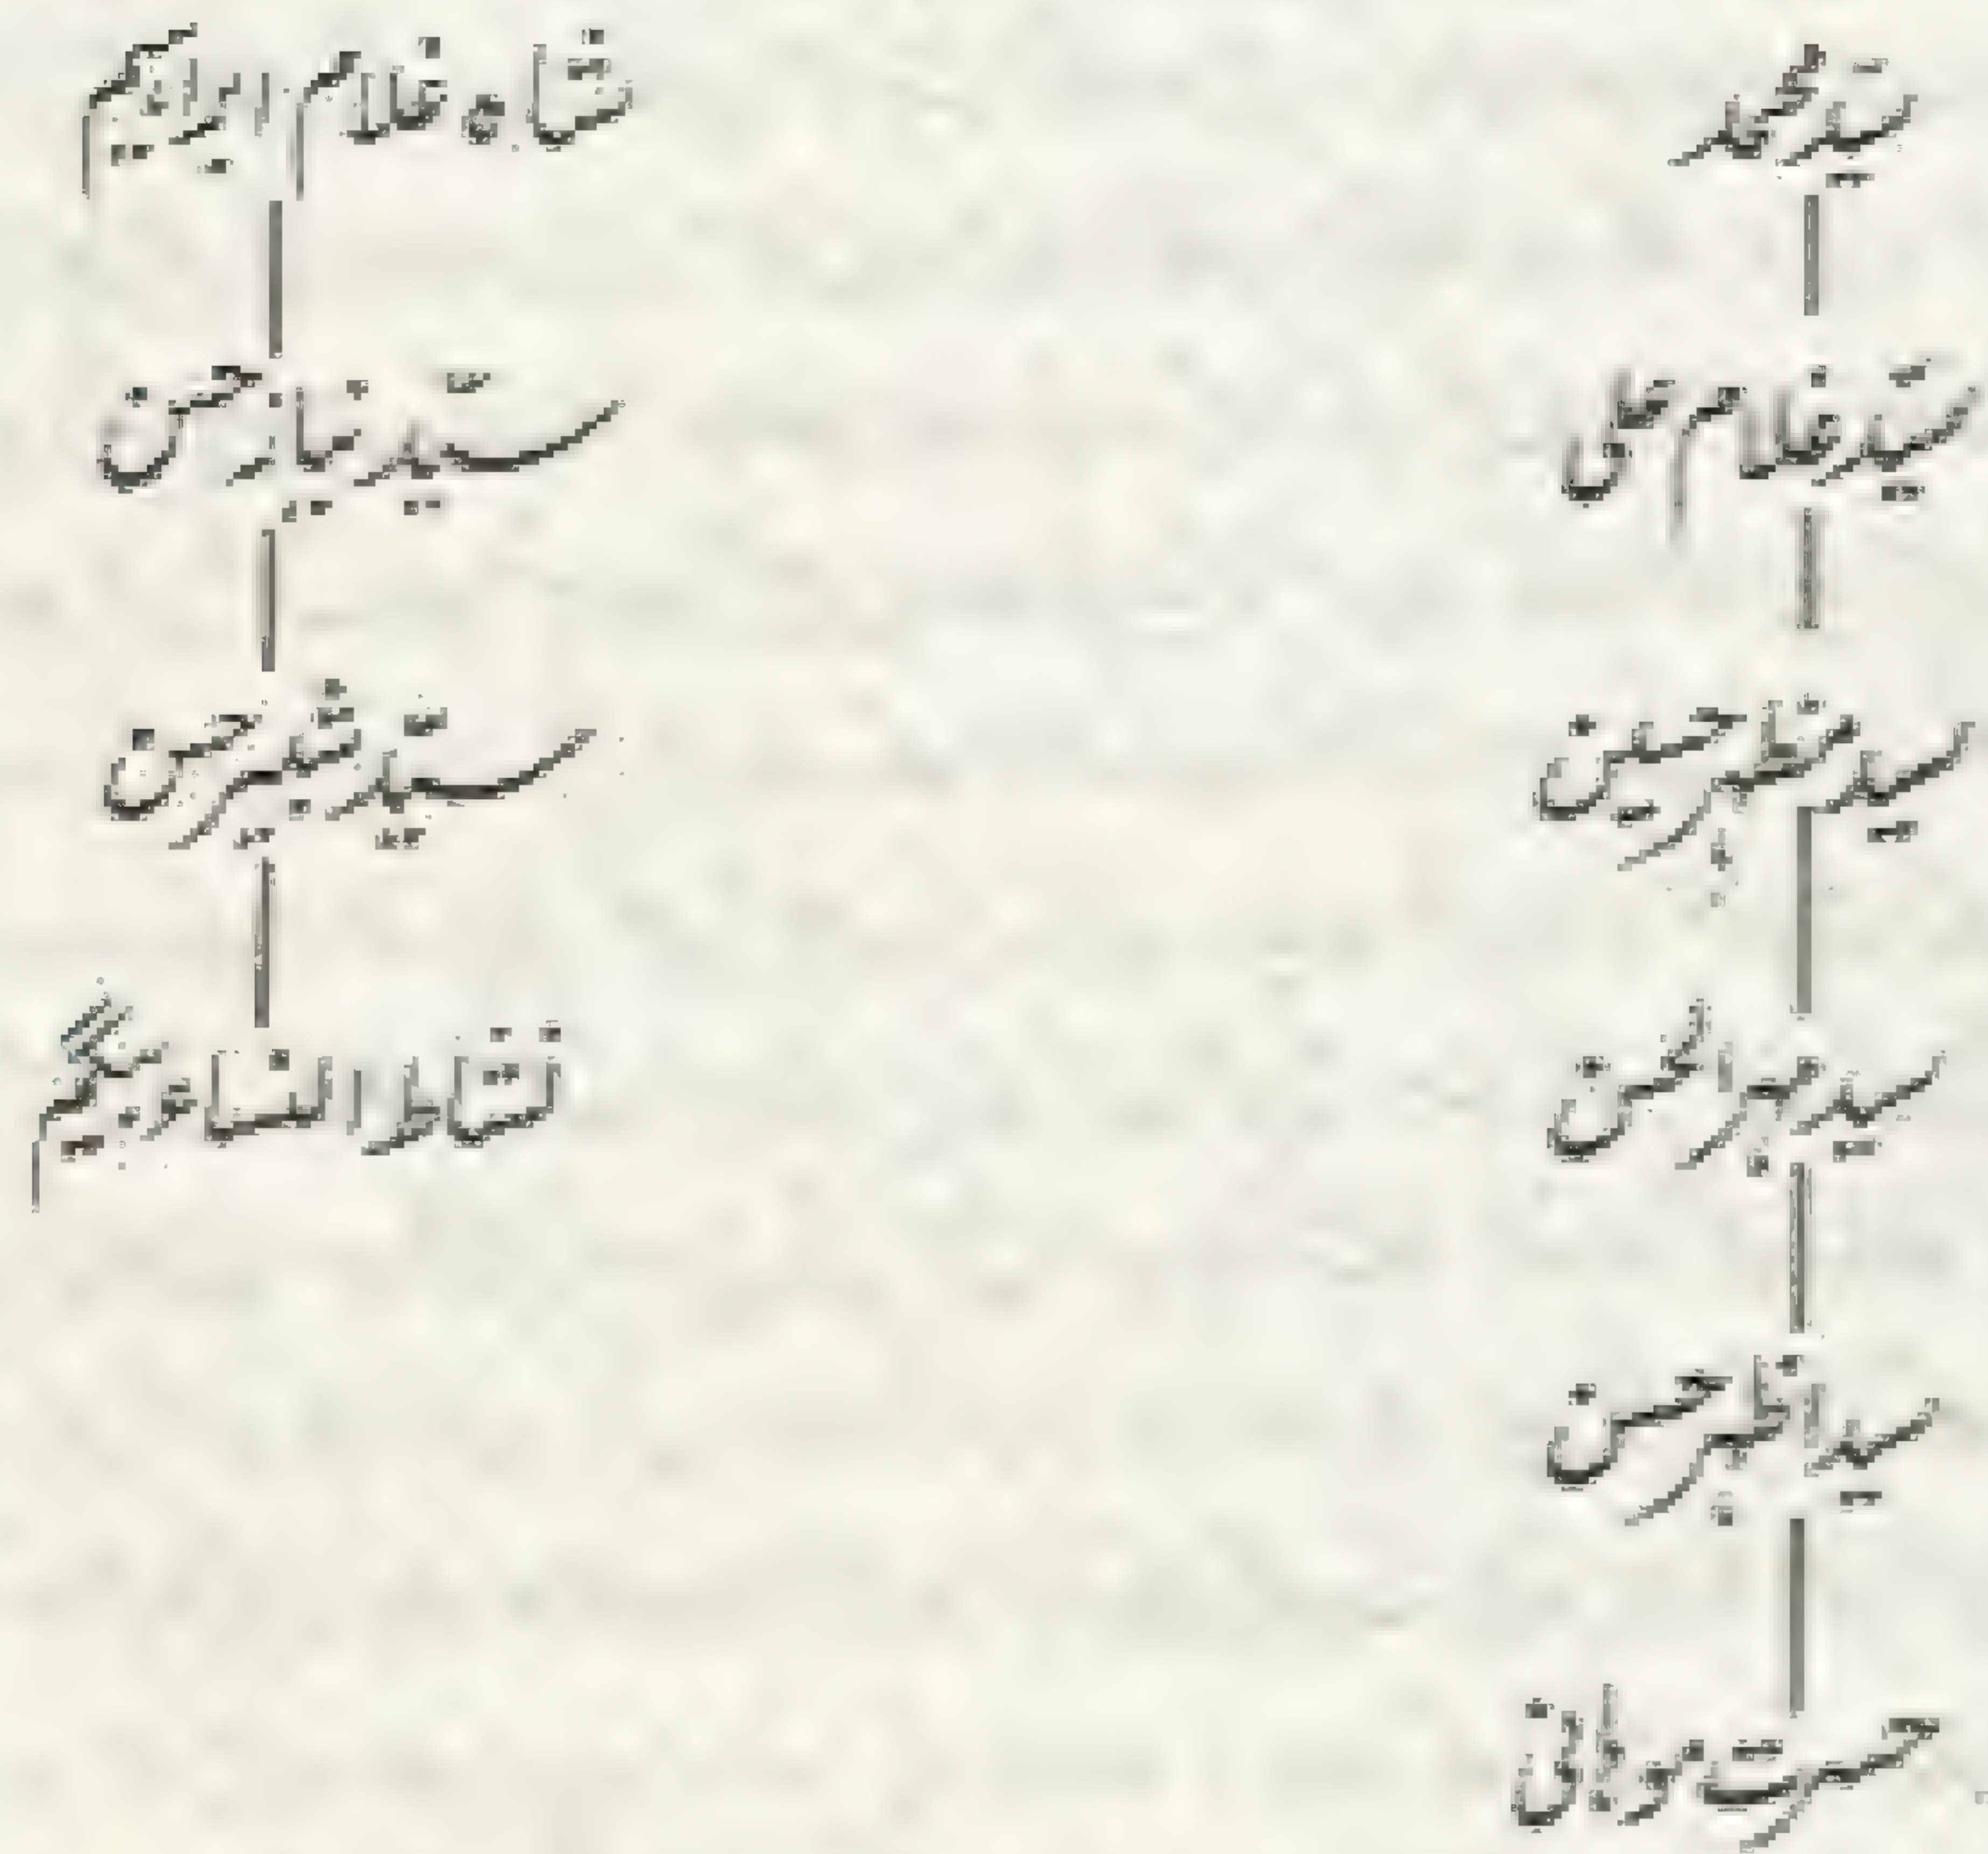 سیّد محمد
سیّد غلام علی
سید مظہر حسین
سید مہر الحسن
سید اظہر حسن
حسرت موہانی
شاہ غلام ابراہیم
سیّد نیاز حسن
سیّد شبیر حسن
نشاط النساء بیگم